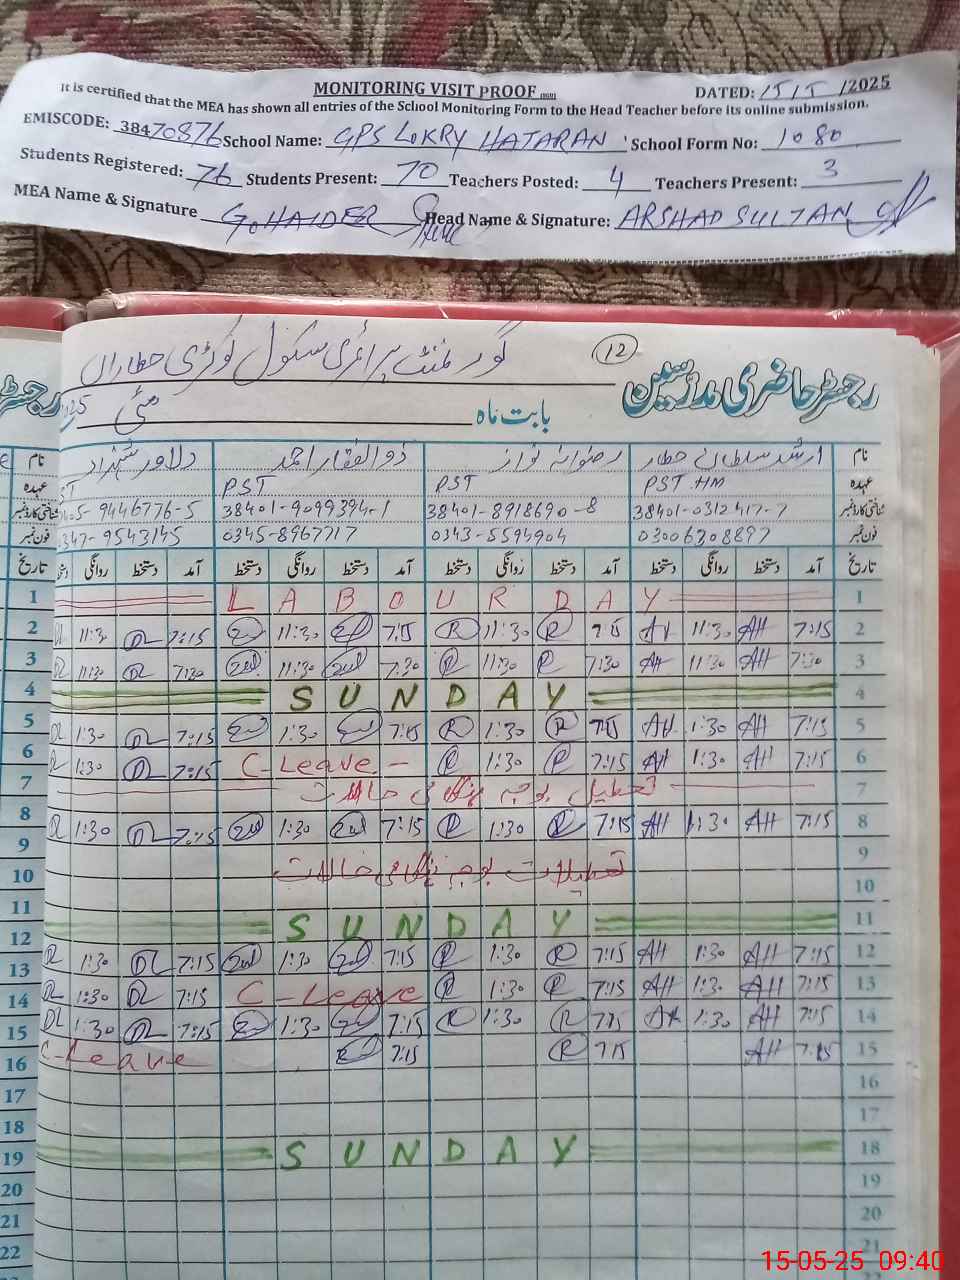 MONITORING VISIT PROOF DATED: 15/5/2025
It is certified that the MEA has shown all entries of the School Monitoring Form to the Head Teacher before its online submission.
EMISCODE: 38470876 School Name: GPS LOKRY HATARAN School Form No: 1080
Students Registered: 76 Students Present: 70 Teachers Posted: 4 Teachers Present: 3
MEA Name & Signature G. HAIDER Head Name & Signature: ARSHAD SULTAN
رجسٹر حاضری مدرسین 12 گورنمنٹ پرائمری سکول لوکڑی حطاراں
بابت ماہ مئی
نام ارشد سلطان حطار رضوانہ نواز ذوالفقار احمد دلاور شہزاد نام
عہدہ PST HM PST PST ST عہدہ
شناختی کارڈ نمبر 38401-0312417-7 38401-8918690-8 38401-9099394-1 405-9446776-5
فون نمبر 03006308897 0343-5594904 0345-8967717 0347-9543145 فون نمبر
تاریخ آمد دستخط روانگی دستخط آمد دستخط روانگی دستخط آمد دستخط روانگی دستخط آمد دستخط روانگی تاریخ
1 LABOUR DAY 1
2 DL 11:30 DL 7:15 11:30 7:15 R 11:30 R 7:15 AH 11:30 AH 7:15 2
3 DL 11:30 DL 7:30 11:30 7:30 R 11:30 R 7:30 AH 11:30 AH 7:30 3
4 SUNDAY 4
5 DL 1:30 DL 7:15 1:30 7:15 R 1:30 R 7:15 AH 1:30 AH 7:15 5
6 DL 1:30 DL 7:15 C-Leave - R 1:30 R 7:15 AH 1:30 AH 7:15 6
7 تعطیل بوجہ ہنگامی حالات 7
8 DL 1:30 DL 7:15 1:30 7:15 R 1:30 R 7:15 AH 1:30 AH 7:15 8
9 تعطیلات بوجہ ہنگامی حالات 9
10 10
11 SUNDAY 11
12 DL 1:30 DL 7:15 1:30 7:15 R 1:30 R 7:15 AH 1:30 AH 7:15 12
13 DL 1:30 DL 7:15 C-Leave R 1:30 R 7:15 AH 1:30 AH 7:15 13
14 DL 1:30 DL 7:15 1:30 7:15 R 1:30 R 7:15 AH 1:30 AH 7:15 14
15 C-Leave 7:15 R 7:15 AH 7:15 15
16 16
17 17
18 SUNDAY 18
19 19
20 20
21 21
22
15-05-25 09:40